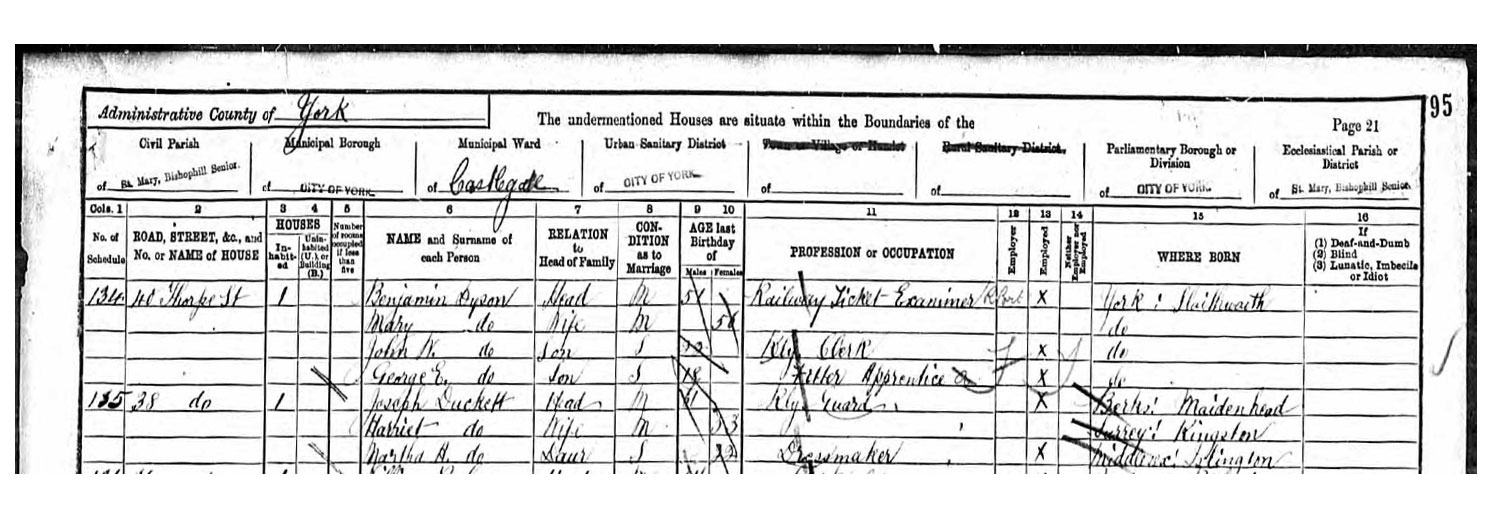 95
Administrative County of York
The undermentioned Houses are situate within the Boundaries of the
Page 21
Civil Parish
of St. Mary, Bishophill Senior.
Municipal Borough
of CITY OF YORK
Municipal Ward
of Castlegate
Urban Sanitary District
of CITY OF YORK
Town or Village or Hamlet
of
Rural Sanitary District.
of
Parliamentary Borough or Division
of CITY OF YORK
Ecclesiastical Parish or District
of St. Mary, Bishophill Senior.
Cols. 1 2 3 4 5 6 7 8 9 10 11 12 13 14 15 16
No. of Schedule
ROAD, STREET, &c., and No. or NAME of HOUSE
HOUSES
Inhabited
Uninhabited (U.), or Building (B.)
Number of rooms occupied if less than five
NAME and Surname of each Person
RELATION to Head of Family
CONDITION as to Marriage
AGE last Birthday of
Males Females
PROFESSION or OCCUPATION
Employer
Employed
Neither Employer nor Employed
WHERE BORN
If
(1) Deaf-and-Dumb
(2) Blind
(3) Lunatic, Imbecile or Idiot
134 40 Thorpe St 1 Benjamin Dyson Head M 51 Railway Ticket Examiner X York : Slaithwaith
Mary do Wife M do
John W. do Son S Rly Clerk X do
George E. do Son S 18 Fitter Apprentice X do
135 38 do 1 Joseph Duckett Head M Rly Guard X Berks : Maidenhead
Harriet do Wife M 53 Surrey : Kingston
Martha A. do Daur S 22 Dressmaker X Middlesex : Islington